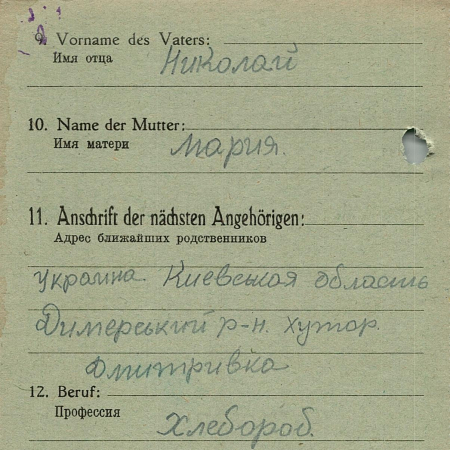 9. Vorname des Vaters:
Имя отца Николай
10. Name der Mutter:
Имя матери Мария.
11. Anschrift der nächsten Angehörigen:
Адрес ближайших родственников
Украина Киевськая область
Димерський р-н. хутор.
Дмитривка
12. Beruf:
Профессия Хлебороб.